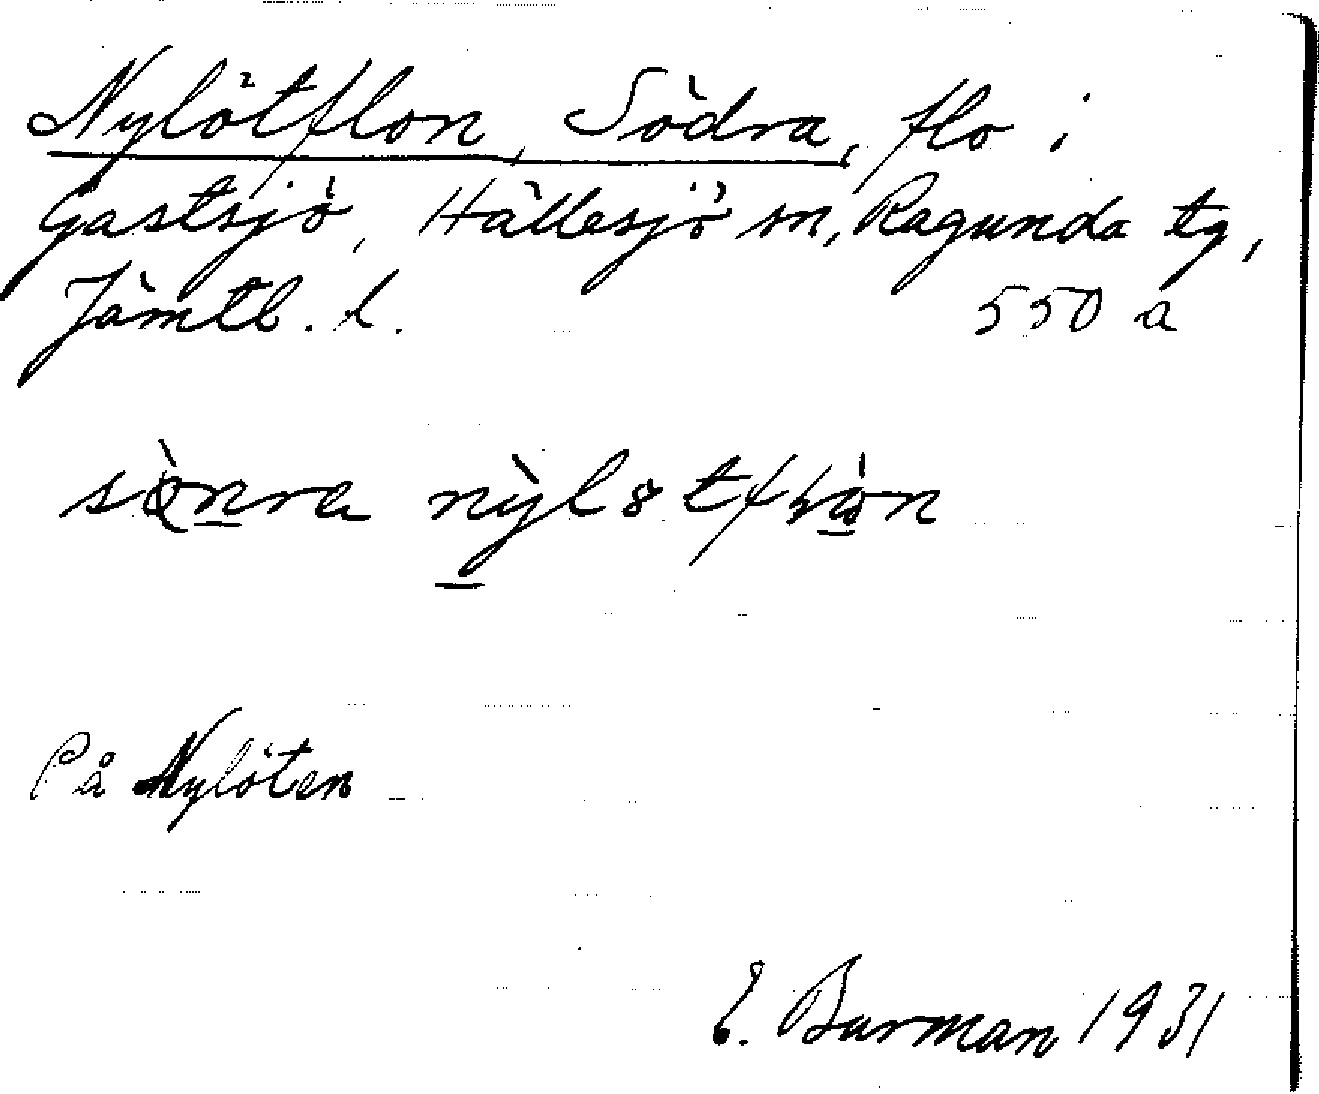 Nylötflon, Södra, flo i
Gastsjö, Hällesjö sn, Ragunda tg,
Jämtl. l. 550 a
På Nylöten
E. Burman 1931